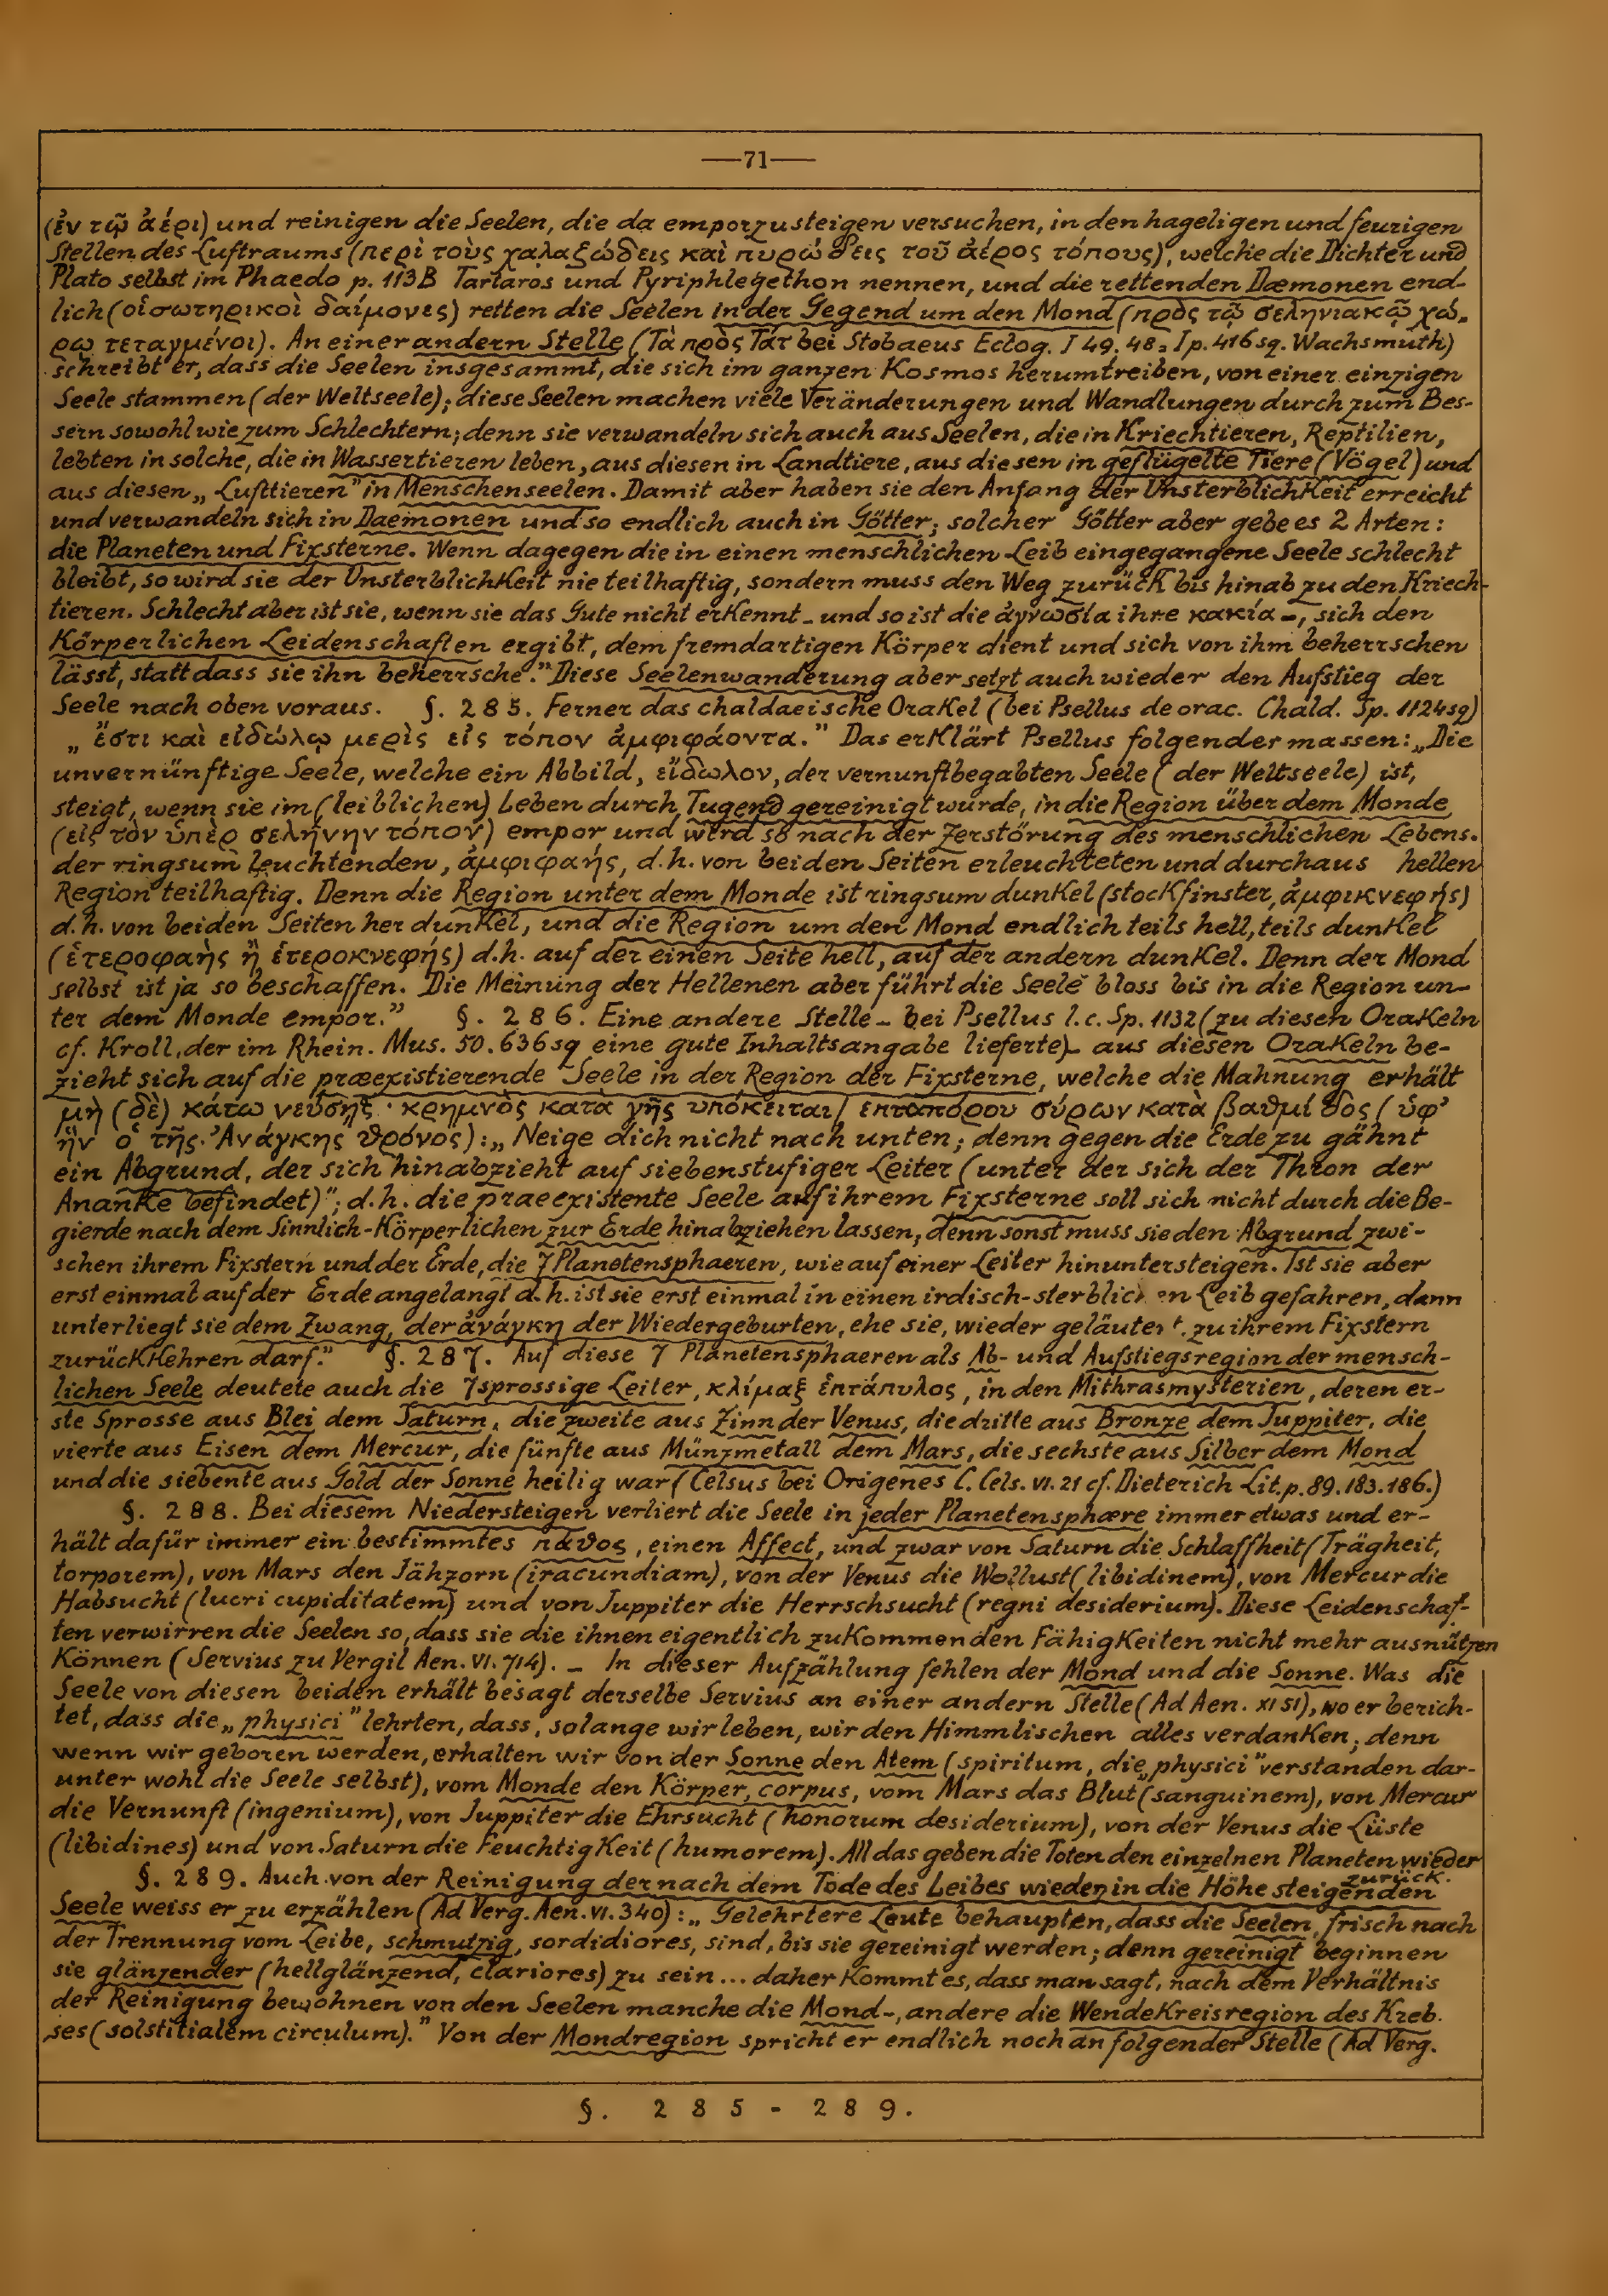 —71—
(ἐν τῷ ἀέρι) und reinigen die Seelen, die da emporzusteigen versuchen, in den hageligen und feurigen
Stellen des Luftraums (περὶ τοὺς χαλαζώδεις καὶ πυρώδεις τοῦ ἀέρος τόπους), welche die Dichter und
Plato selbst im Phaedo p. 113B Tartaros und Pyriphlegethon nennen, und die rettenden Dæmonen end-
lich (οἱ σωτηρικοὶ δαίμονες) retten die Seelen in der Gegend um den Mond (πρὸς τῷ σεληνιακῷ χώ-
ρῳ τεταγμένοι). An einer andern Stelle (Τὰ πρὸς Τάτ bei Stobaeus Eclog. I 49. 48 = I p. 416 sq. Wachsmuth)
schreibt er, dass die Seelen insgesammt, die sich im ganzen Kosmos herumtreiben, von einer einzigen
Seele stammen (der Weltseele); diese Seelen machen viele Veränderungen und Wandlungen durch zum Bes-
sern sowohl wie zum Schlechtern; denn sie verwandeln sich auch aus Seelen, die in Kriechtieren, Reptilien,
lebten in solche, die in Wassertieren leben, aus diesen in Landtiere, aus diesen in geflügelte Tiere (Vögel) und
aus diesen „Lufttieren” in Menschenseelen. Damit aber haben sie den Anfang der Unsterblichkeit erreicht
und verwandeln sich in Daemonen und so endlich auch in Götter; solcher Götter aber gebe es 2 Arten:
die Planeten und Fixsterne. Wenn dagegen die in einen menschlichen Leib eingegangene Seele schlecht
bleibt, so wird sie der Unsterblichkeit nie teilhaftig, sondern muss den Weg zurück bis hinab zu den Kriech-
tieren. Schlecht aber ist sie, wenn sie das Gute nicht erkennt - und so ist die ἀγνωσία ihre κακία -, sich den
Körperlichen Leidenschaften ergibt, dem fremdartigen Körper dient und sich von ihm beherrschen
lässt, statt dass sie ihn beherrsche.” Diese Seelenwanderung aber setzt auch wieder den Aufstieg der
Seele nach oben voraus. §. 285. Ferner das chaldaeische Orakel (bei Psellus de orac. Chald. Sp. 1124 sq)
„ἔστι καὶ εἰδώλῳ μερὶς εἰς τόπον ἀμφιφάοντα.” Das erklärt Psellus folgendermassen: „Die
unvernünftige Seele, welche ein Abbild, εἴδωλον, der vernunftbegabten Seele (der Weltseele) ist,
steigt, wenn sie im (leiblichen) Leben durch Tugend gereinigt wurde, in die Region über dem Monde
(εἰς τὸν ὑπὲρ σελήνην τόπον) empor und wird so nach der Zerstörung des menschlichen Lebens.
der ringsum leuchtenden, ἀμφιφαής, d.h. von beiden Seiten erleuchteten und durchaus hellen
Region teilhaftig. Denn die Region unter dem Monde ist ringsum dunkel (stockfinster, ἀμφικνεφής)
d.h. von beiden Seiten her dunkel, und die Region um den Mond endlich teils hell, teils dunkel
(ἑτεροφαὴς ἢ ἑτεροκνεφής) d.h. auf der einen Seite hell, auf der andern dunkel. Denn der Mond
selbst ist ja so beschaffen. Die Meinung der Hellenen aber führt die Seele bloss bis in die Region un-
ter dem Monde empor.” §. 286. Eine andere Stelle - bei Psellus l.c. Sp. 1132 (zu diesen Orakeln
cf. Kroll, der im Rhein. Mus. 50. 636 sq eine gute Inhaltsangabe lieferte) - aus diesen Orakeln be-
zieht sich auf die præexistierende Seele in der Region der Fixsterne, welche die Mahnung erhält
μὴ (δὲ) κάτω νεύσῃς · κρημνὸς κατὰ γῆς ὑπόκειται / ἑπταπόρου σύρων κατὰ βαθμίδος (ὑφ’
ἣν ὁ τῆς Ἀνάγκης θρόνος): „Neige dich nicht nach unten; denn gegen die Erde zu gähnt
ein Abgrund, der sich hinabzieht auf siebenstufiger Leiter (unter der sich der Thron der
Ananke befindet)”; d.h. die praeexistente Seele auf ihrem Fixsterne soll sich nicht durch die Be-
gierde nach dem Sinnlich-Körperlichen zur Erde hinabziehen lassen, denn sonst muss sie den Abgrund zwi-
schen ihrem Fixstern und der Erde, die 7 Planetensphaeren, wie auf einer Leiter hinuntersteigen. Ist sie aber
erst einmal auf der Erde angelangt d.h. ist sie erst einmal in einen irdisch-sterblichen Leib gefahren, dann
unterliegt sie dem Zwang, der ἀνάγκη der Wiedergeburten, ehe sie, wieder geläutert, zu ihrem Fixstern
zurückkehren darf.” §. 287. Auf diese 7 Planetensphaeren als Ab- und Aufstiegsregion der mensch-
lichen Seele deutete auch die 7sprossige Leiter, κλίμαξ ἑπτάπυλος, in den Mithrasmysterien, deren er-
ste Sprosse aus Blei dem Saturn, die zweite aus Zinn der Venus, die dritte aus Bronze dem Juppiter, die
vierte aus Eisen dem Mercur, die fünfte aus Münzmetall dem Mars, die sechste aus Silber dem Mond
und die siebente aus Gold der Sonne heilig war (Celsus bei Origenes C. Cels. VI. 21 cf. Dieterich Lit. p. 89. 183. 186.)
§. 288. Bei diesem Niedersteigen verliert die Seele in jeder Planetensphære immer etwas und er-
hält dafür immer ein bestimmtes πάθος, einen Affect, und zwar von Saturn die Schlaffheit (Trägheit,
torporem), von Mars den Jähzorn (iracundiam), von der Venus die Wollust (libidinem), von Mercur die
Habsucht (lucri cupiditatem) und von Juppiter die Herrschsucht (regni desiderium). Diese Leidenschaf-
ten verwirren die Seelen so, dass sie die ihnen eigentlich zukommenden Fähigkeiten nicht mehr ausnützen
Können (Servius zu Vergil Aen. VI. 714). - In dieser Aufzählung fehlen der Mond und die Sonne. Was die
Seele von diesen beiden erhält besagt derselbe Servius an einer andern Stelle (Ad Aen. XI 51), wo er berich-
tet, dass die „physici” lehrten, dass, solange wir leben, wir den Himmlischen alles verdanken; denn
wenn wir geboren werden, erhalten wir von der Sonne den Atem (spiritum, die „physici” verstanden dar-
unter wohl die Seele selbst), vom Monde den Körper, corpus, vom Mars das Blut (sanguinem), von Mercur
die Vernunft (ingenium), von Juppiter die Ehrsucht (honorum desiderium), von der Venus die Lüste
(libidines) und von Saturn die Feuchtigkeit (humorem). All das geben die Toten den einzelnen Planeten wieder
zurück.
§. 289. Auch von der Reinigung der nach dem Tode des Leibes wieder in die Höhe steigenden
Seele weiss er zu erzählen (Ad Verg. Aen. VI. 340): „Gelehrtere Leute behaupten, dass die Seelen, frisch nach
der Trennung vom Leibe, schmutzig, sordidiores, sind, bis sie gereinigt werden; denn gereinigt beginnen
sie glänzender (hellglänzend, clariores) zu sein ... daher kommt es, dass man sagt, nach dem Verhältnis
der Reinigung bewohnen von den Seelen manche die Mond-, andere die Wendekreisregion des Kreb-
ses (solstitialem circulum).” Von der Mondregion spricht er endlich noch an folgender Stelle (Ad Verg.
§. 285-289.